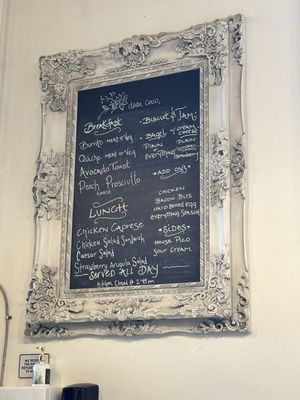 dear coco,
Breakfast
Burrito meat or veg
Quiche meat or veg
Avocado Toast
Peach Prosciutto
toast
LUNCH
Chicken Caprese
Chicken Salad Sandwich
Caesar Salad
Strawberry Arugula Salad
• Biscuit & Jam
• Bagel w/ cream cheese
Plain
everything
Plain
strawberry
• Add ons •
Chicken
Bacon Bits
Hard Boiled egg
everything season
• Sides •
House Pico
Sour cream
Served All Day
Kitchen Closed @ 2:45pm